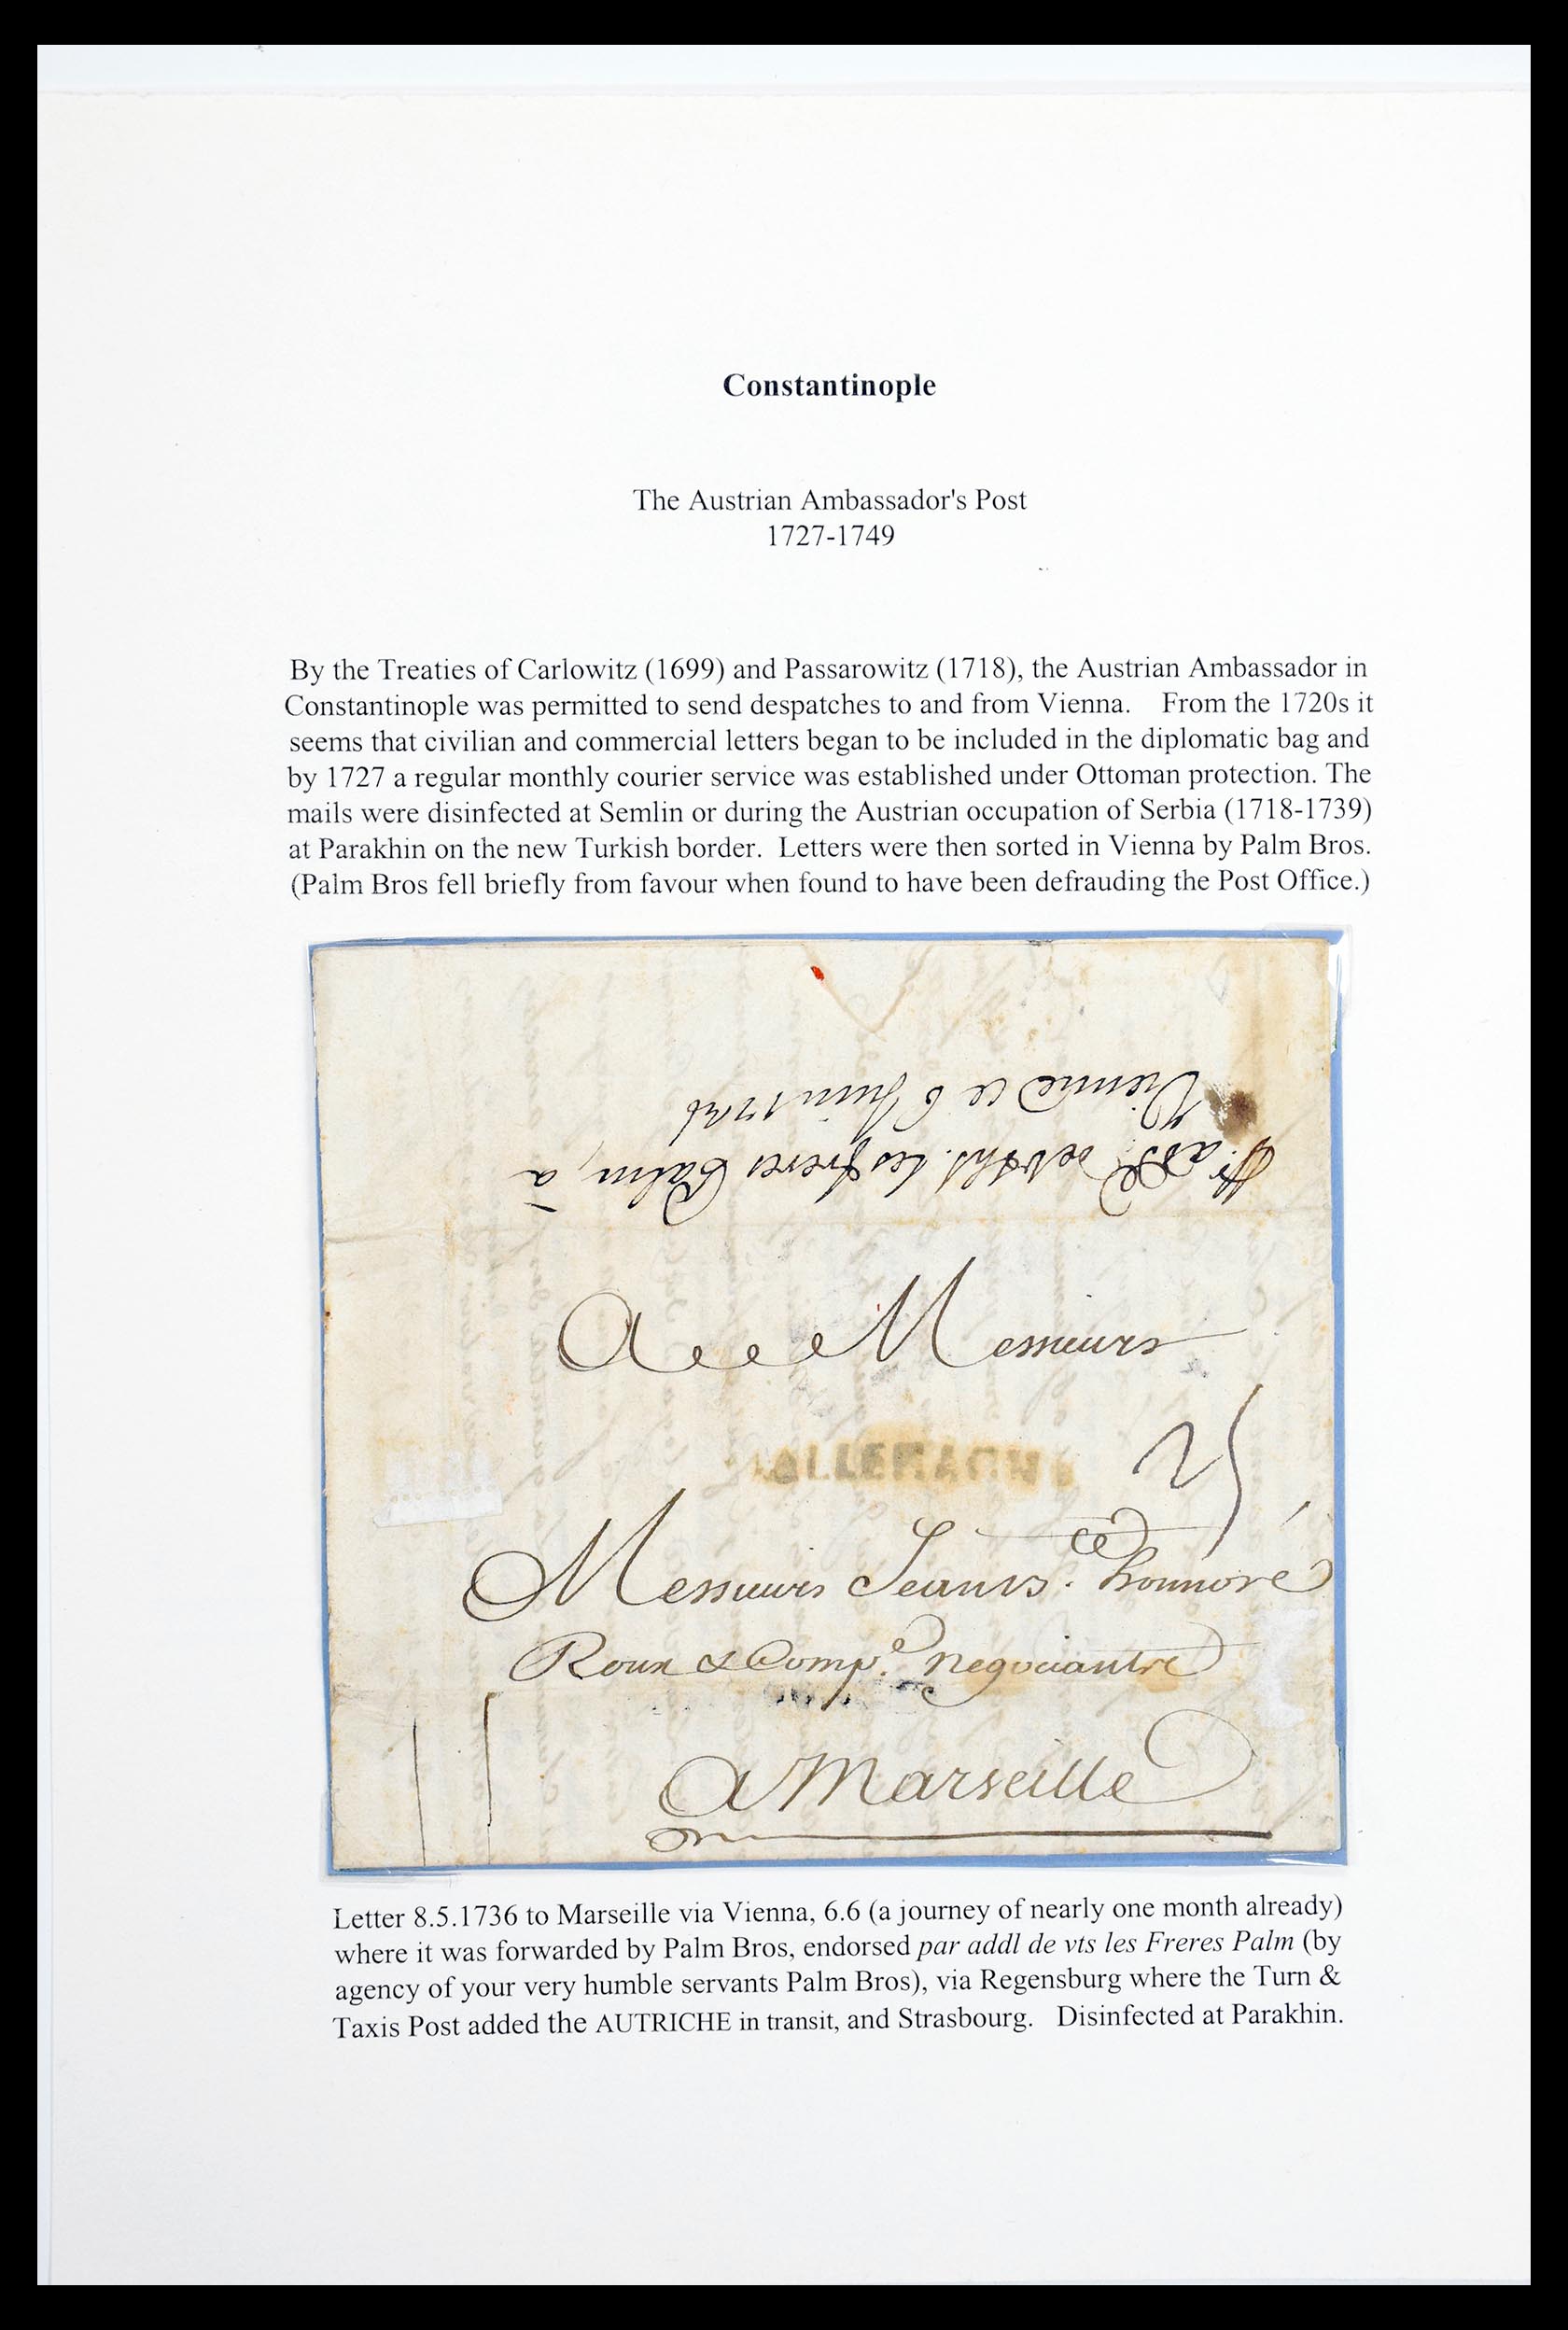 Constantinople
The Austrian Ambassador's Post
1727-1749
By the Treaties of Carlowitz (1699) and Passarowitz (1718), the Austrian Ambassador in
Constantinople was permitted to send despatches to and from Vienna. From the 1720s it
seems that civilian and commercial letters began to be included in the diplomatic bag and
by 1727 a regular monthly courier service was established under Ottoman protection. The
mails were disinfected at Semlin or during the Austrian occupation of Serbia (1718-1739)
at Parakhin on the new Turkish border. Letters were then sorted in Vienna by Palm Bros.
(Palm Bros fell briefly from favour when found to have been defrauding the Post Office.)
les freres Palm, à
Vienne ce 6 Juin 1736
A Messieurs
ALLEMAGNE
Messieurs honnoré
Roux & Comp.e negociantre
A Marseille
Letter 8.5.1736 to Marseille via Vienna, 6.6 (a journey of nearly one month already)
where it was forwarded by Palm Bros, endorsed par addl de vts les Freres Palm (by
agency of your very humble servants Palm Bros), via Regensburg where the Turn &
Taxis Post added the AUTRICHE in transit, and Strasbourg. Disinfected at Parakhin.